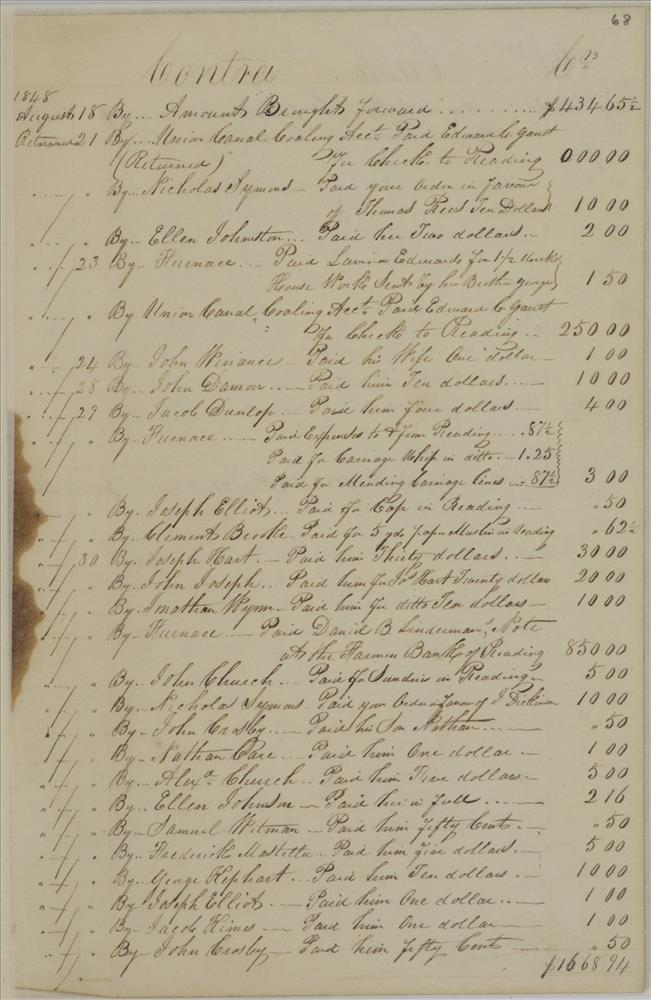 68
Contra Crs
1848
August 18 By Amount Brought forward $434 65½
Returned 21 By Union Canal Coaling Acct. Paid Edward C. Gault
(Returned) In Check to Reading 000 00
" " By Nicholas Symons Paid your Order in favour
of Thomas Rees Ten Dollars 10 00
" " By Ellen Johnston Paid her Two dollars 2 00
" 23 By Furnace Paid Edwards for 1½ Weeks
House Work Sent by her Brother George 1 50
" " By Union Canal Coaling Acct. Paid Edward C. Gault
In Check to Reading 250 00
" 24 By John Winance Paid his Wife One dollar 1 00
" 28 By John Damon Paid him Ten dollars 10 00
" 29 By Jacob Dunlop Paid him four dollars 4 00
" " By Furnace Paid Expenses to & from Reading .87½
Paid for Carriage Whip in ditto 1.25
Paid for Mending Carriage lines .87½ 3 00
" By Joseph Elliot Paid for Cap in Reading " 50
" " By Clement Brooke Paid for 5 yds Muslin in Reading " 62½
" 30 By Joseph Hart Paid him Thirty dollars 30 00
" " By John Joseph Paid him for Jos Hart Twenty dollars 20 00
" " By Jonathan Wynn Paid him for ditto Ten dollars 10 00
" " By Furnace Paid Daniel B. Linderman's Note
at the Farmers Bank of Reading 850 00
" " By John Church Paid for Sundries in Reading 5 00
" " By Nicholas Symons Paid your Order in favour of J Dickinson 10 00
" " By John Crosby Paid his Son Nathan " 50
" " By Nathan Care Paid him One dollar 1 00
" " By Alexr. Church Paid him Five dollars 5 00
" " By Ellen Johnson Paid her in full 2 16
" " By Samuel Witman Paid him fifty Cents " 50
" " By Frederick Mastetter Paid him five dollars 5 00
" " By George Kephart Paid him Ten dollars 10 00
" " By Joseph Elliot Paid him One dollar 1 00
" " By Jacob Himes Paid him One dollar 1 00
" " By John Crosby Paid him fifty Cents " 50
$1668 94